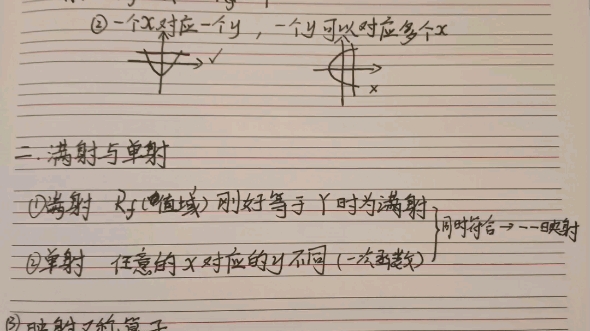 ②一个x对应一个y，一个y可以对应多个x
✓
x
二.满射与单射
①满射 Rf(值域)刚好等于Y时为满射
②单射 任意的x对应的y不同(一次函数)
同时符合→一一映射
③映射又称算子